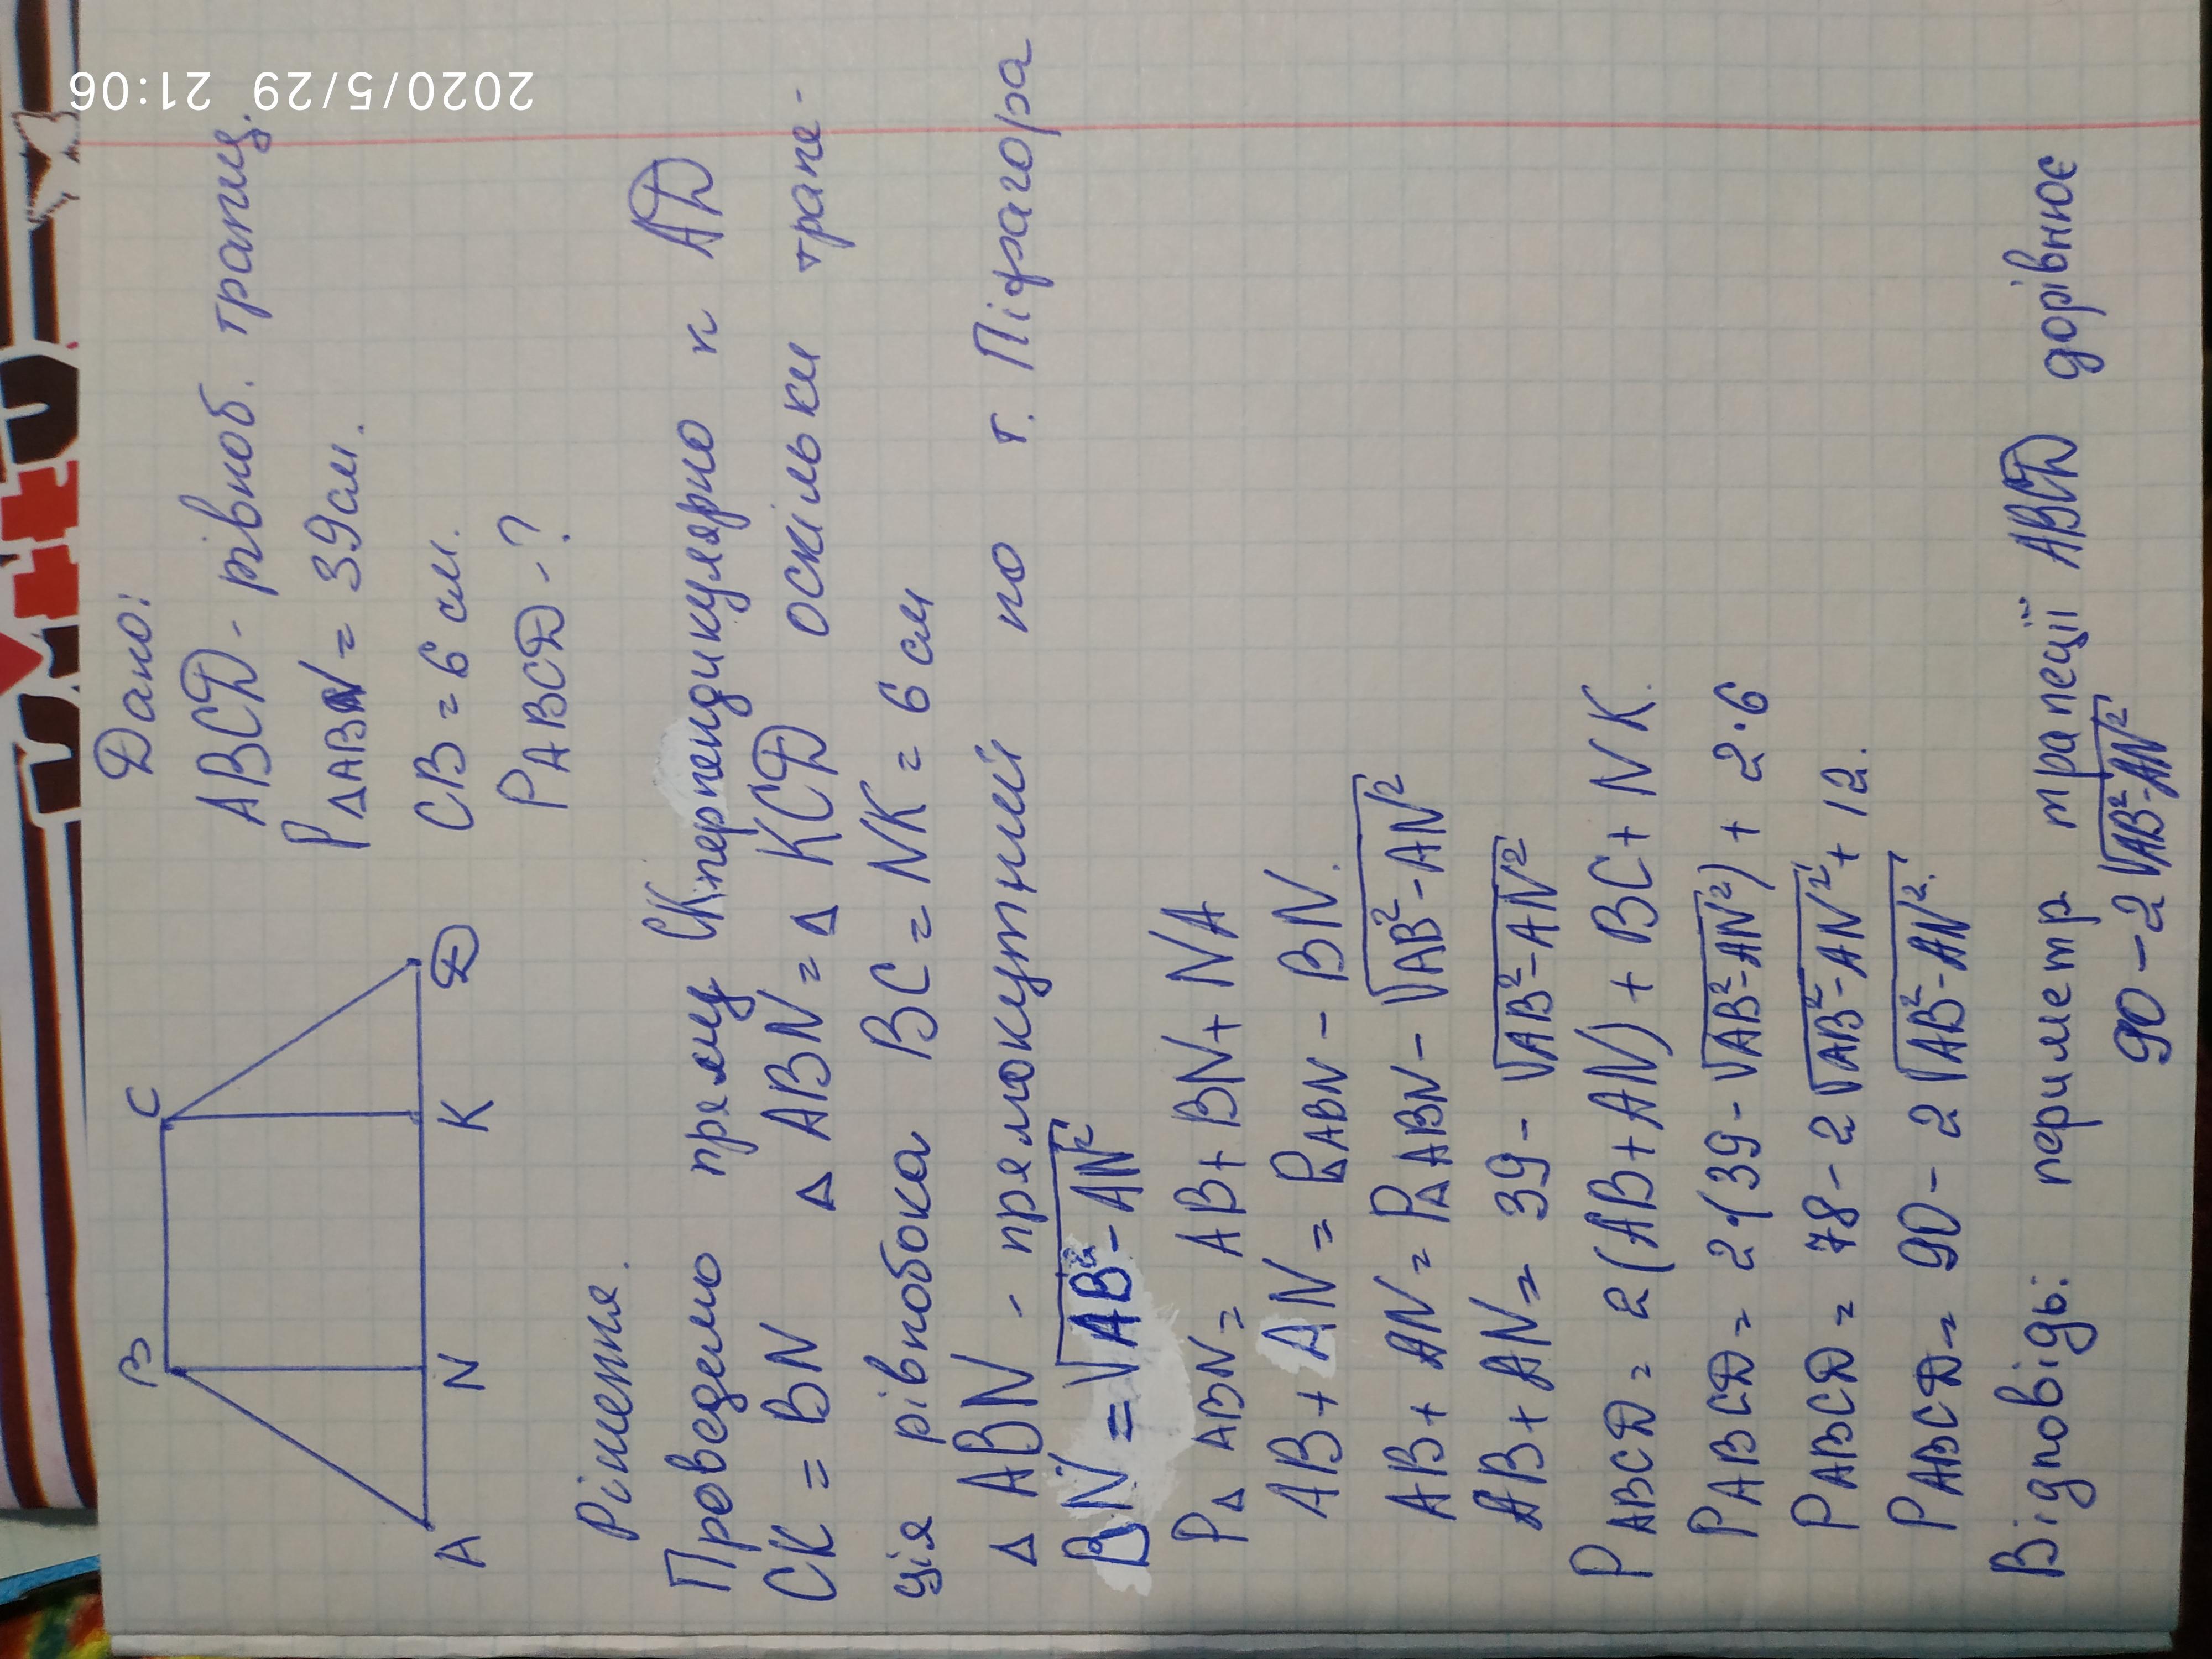 2020/5/29 21:06
Дано:
ABCD - рівноб. трапиц.
P∆ABN = 39 см.
CB = 6 см.
PABCD - ?
B C
A N K D
Рішення.
Проведемо пряму CK перпендикулярно к AD
CK = BN ∆ ABN = ∆ KCD оскільки трапе-
ція рівнобока BC = NK = 6 см
∆ ABN - прямокутний по т. Піфагора
BN = √AB²-AN²
P∆ABN = AB + BN + NA
AB + AN = P∆ABN - BN.
AB + AN = P∆ABN - √AB²-AN²
AB + AN = 39 - √AB²-AN²
PABCD = 2(AB+AN) + BC + NK.
PABCD = 2·(39-√AB²-AN²) + 2·6
PABCD = 78 - 2√AB²-AN² + 12.
PABCD = 90 - 2√AB²-AN².
Відповідь: периметр трапеції ABCD дорівнює
90 - 2√AB²-AN²